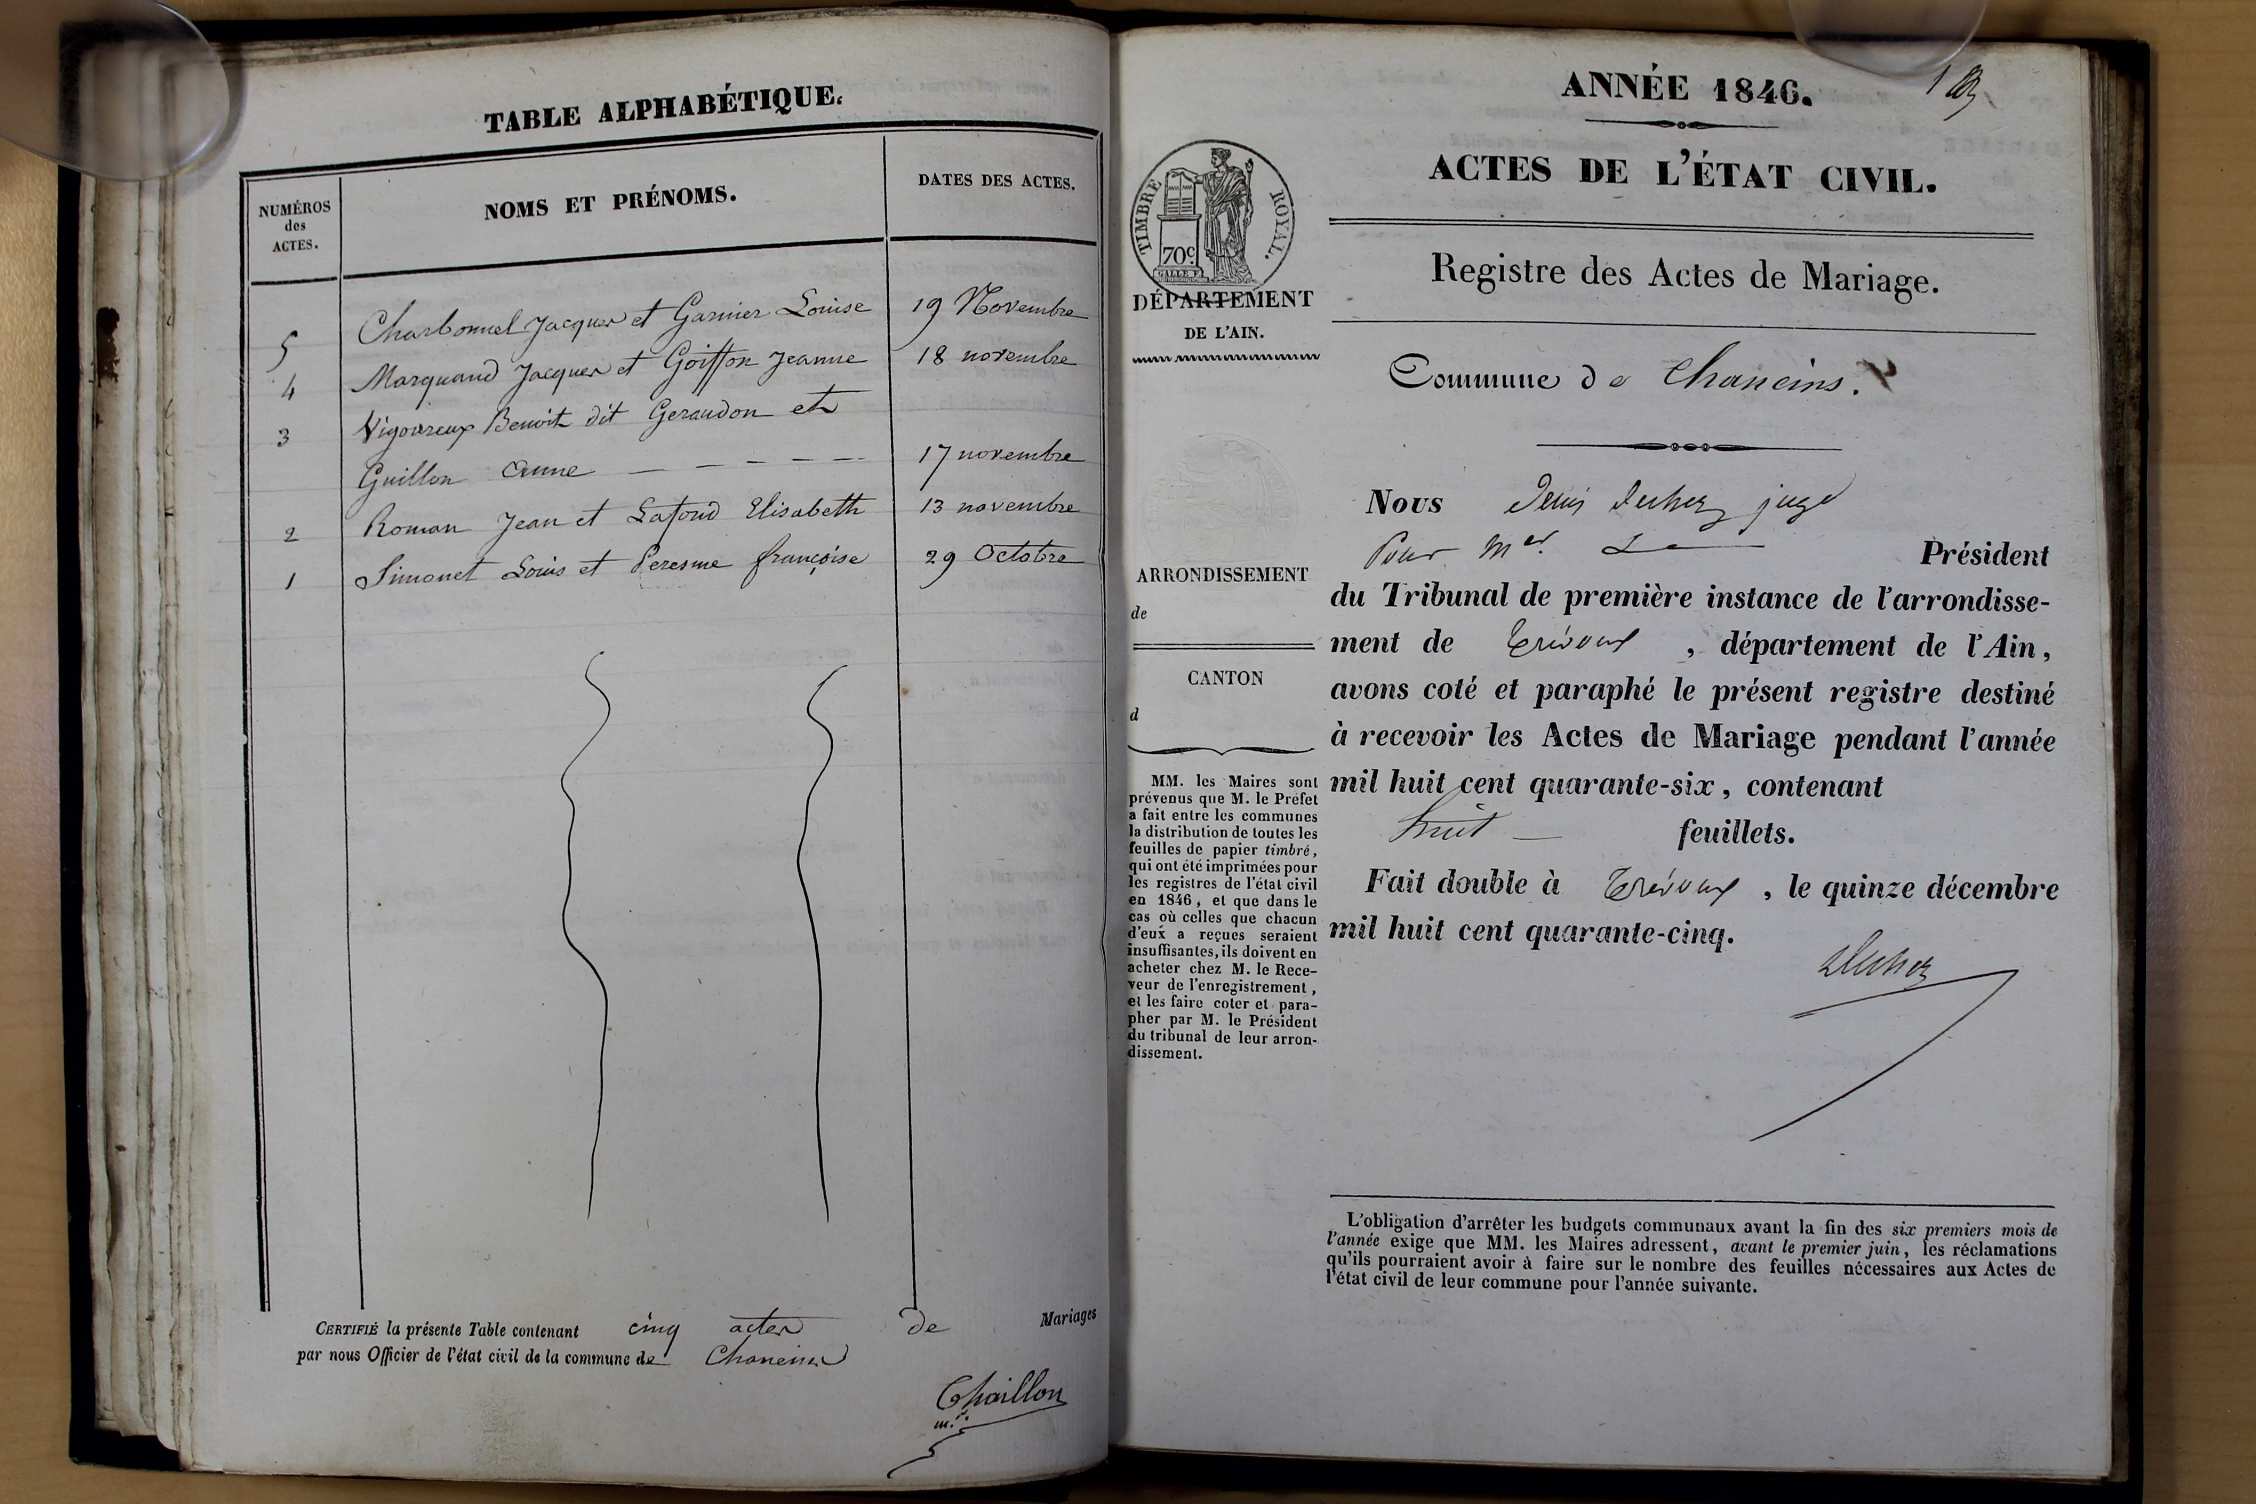 TABLE ALPHABÉTIQUE.
NUMÉROS
des
ACTES.
NOMS ET PRÉNOMS.
DATES DES ACTES.
5 Charbonnel Jacques et Garnier Louise 19 Novembre
4 Marquand Jacques et Goiffon Jeanne 18 novembre
3 Vigoureux Benoit dit Geraudon et
Guillon Anne — — — — — 17 novembre
2 Roman Jean et Lafond Elisabeth 13 novembre
1 Simonet Louis et Peresme françoise 29 Octobre
CERTIFIÉ la présente Table contenant cinq actes de Mariages
par nous Officier de l'état civil de la commune de Chaneins
Chaillon
m.re
ANNÉE 1846.
ACTES DE L'ÉTAT CIVIL.
Registre des Actes de Mariage.
Commune de Chaneins.
TIMBRE ROYAL.
70c.
DÉPARTEMENT
DE L'AIN.
ARRONDISSEMENT
de
CANTON
d
MM. les Maires sont
prévenus que M. le Préfet
a fait entre les communes
la distribution de toutes les
feuilles de papier timbré,
qui ont été imprimées pour
les registres de l'état civil
en 1846, et que dans le
cas où celles que chacun
d'eux a reçues seraient
insuffisantes, ils doivent en
acheter chez M. le Rece-
veur de l'enregistrement,
et les faire coter et para-
pher par M. le Président
du tribunal de leur arron-
dissement.
Nous Denis juge
Pour Mr. Le Président
du Tribunal de première instance de l'arrondisse-
ment de Trévoux, département de l'Ain,
avons coté et paraphé le présent registre destiné
à recevoir les Actes de Mariage pendant l'année
mil huit cent quarante-six, contenant
huit — feuillets.
Fait double à Trévoux, le quinze décembre
mil huit cent quarante-cinq.
L'obligation d'arrêter les budgets communaux avant la fin des six premiers mois de
l'année exige que MM. les Maires adressent, avant le premier juin, les réclamations
qu'ils pourraient avoir à faire sur le nombre des feuilles nécessaires aux Actes de
l'état civil de leur commune pour l'année suivante.